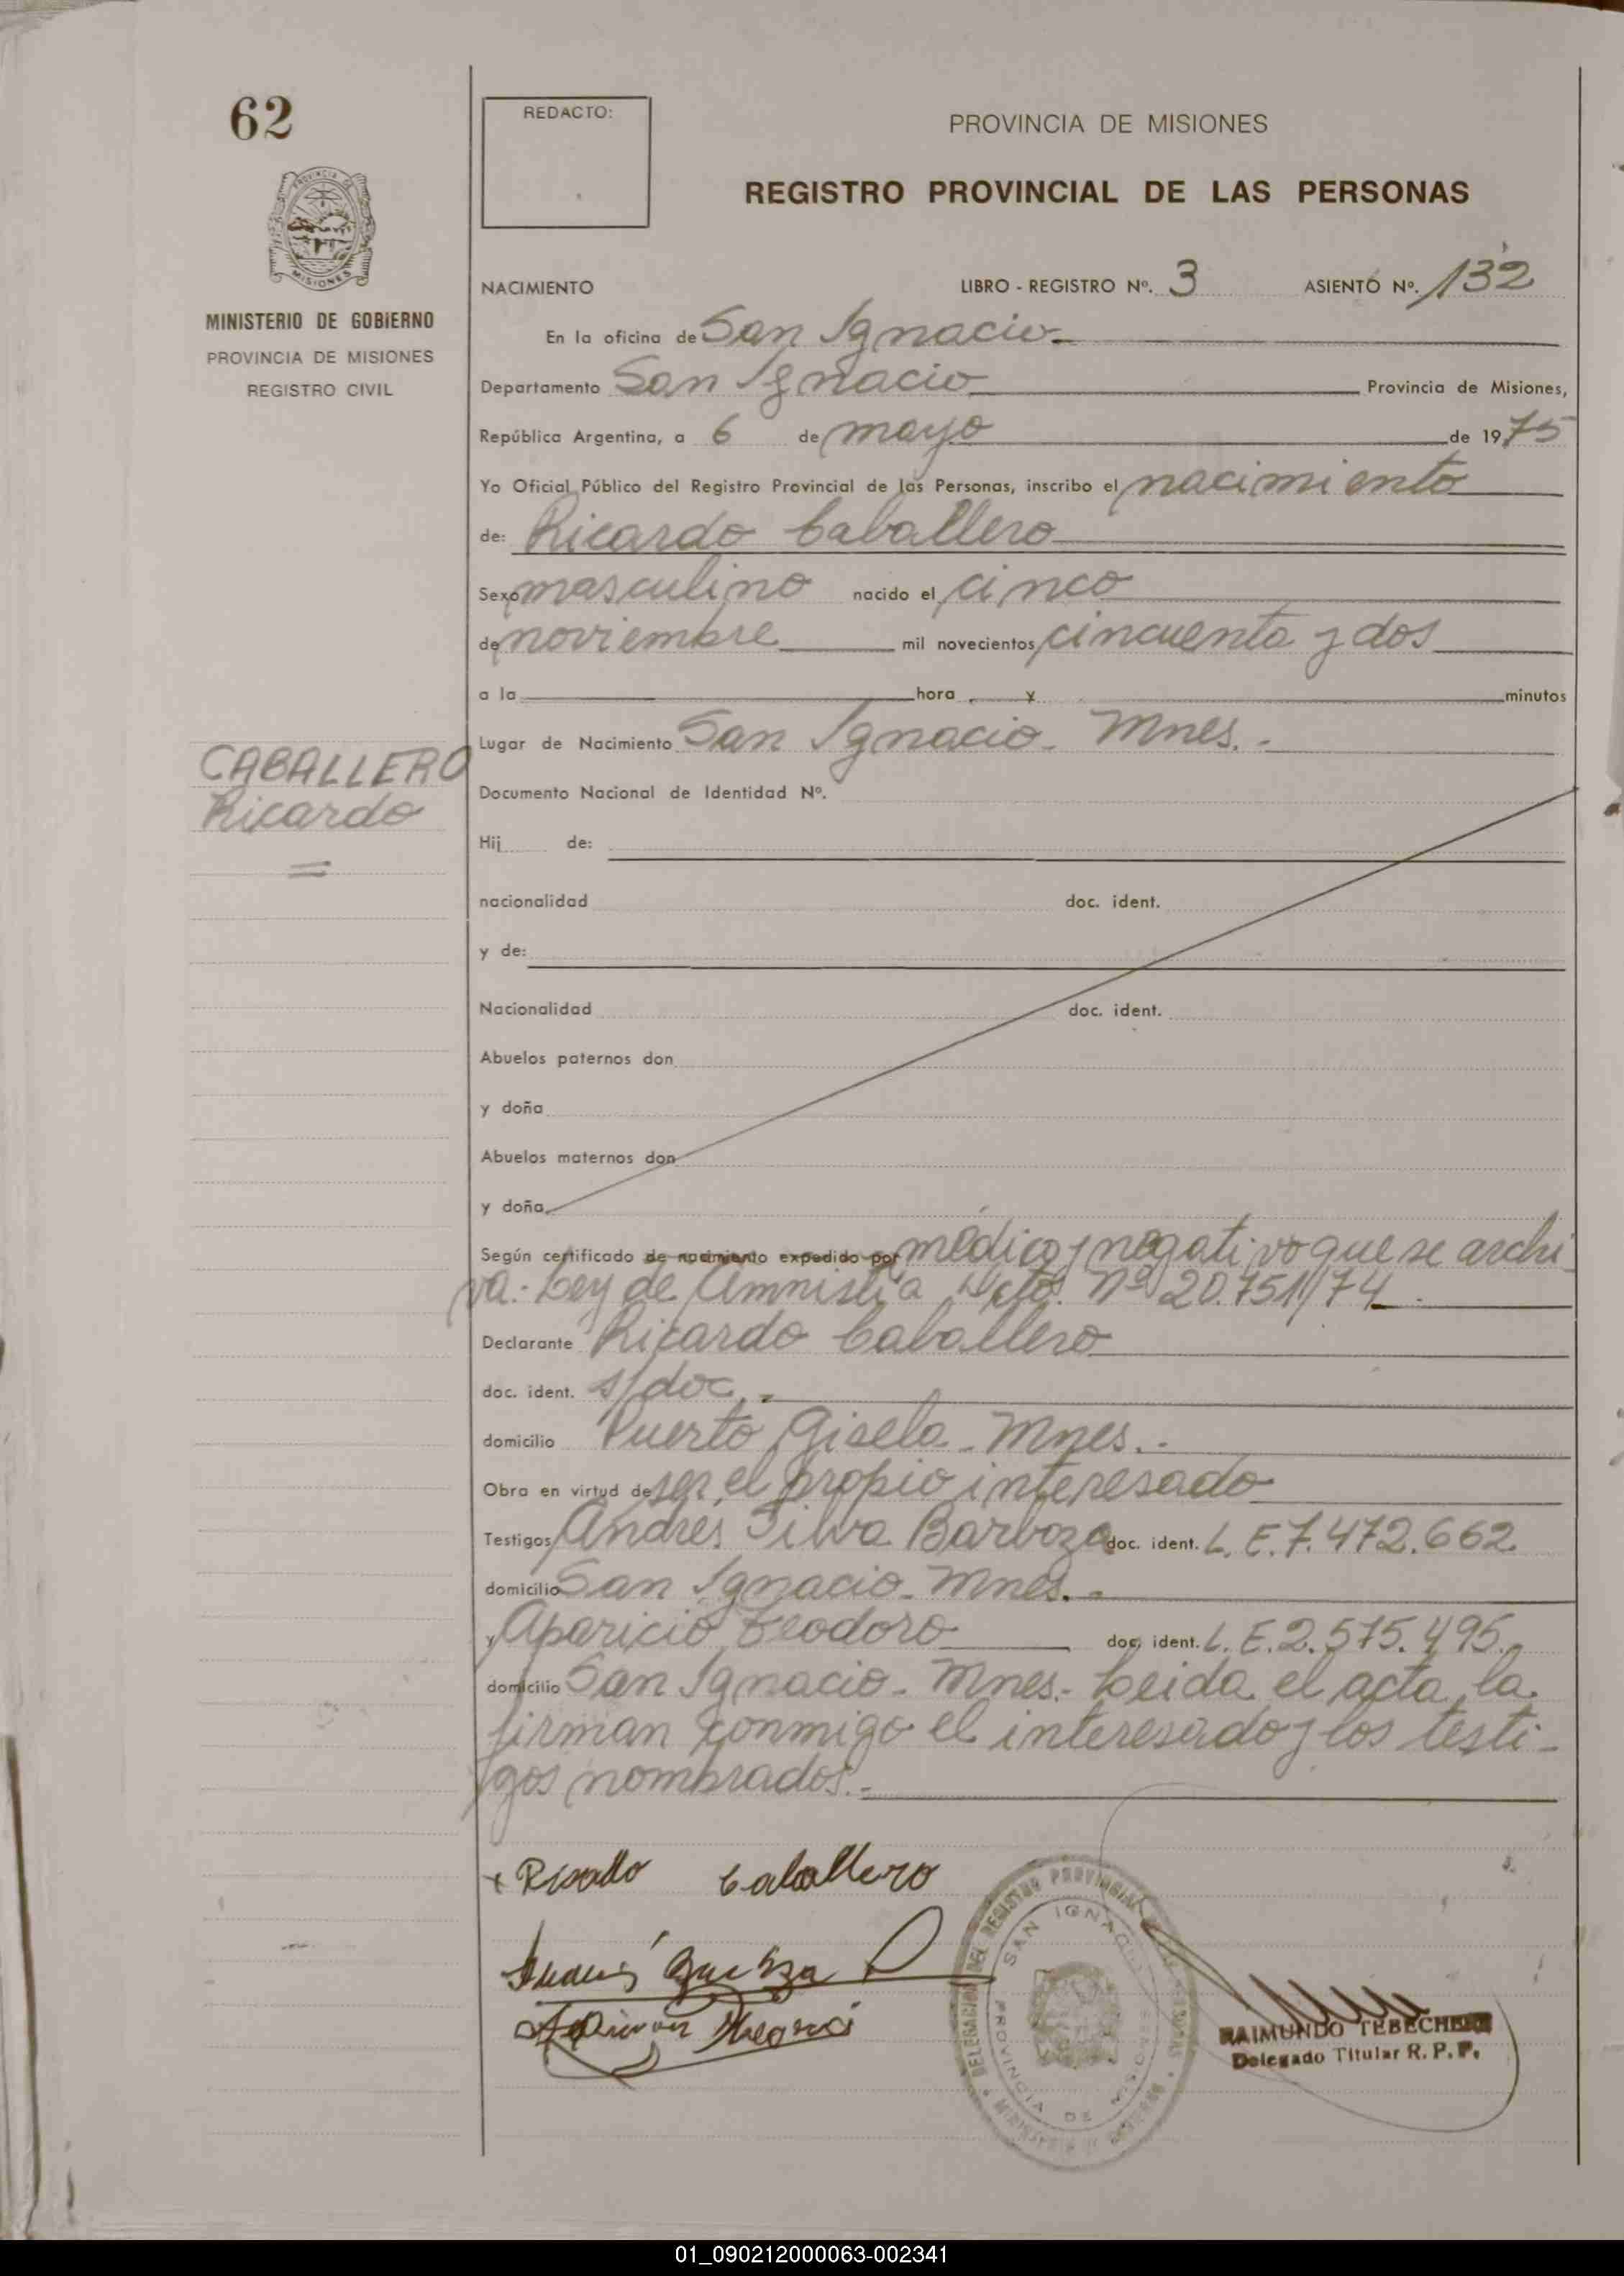 62
REDACTO:
PROVINCIA DE MISIONES
REGISTRO PROVINCIAL DE LAS PERSONAS
MINISTERIO DE GOBIERNO
PROVINCIA DE MISIONES
REGISTRO CIVIL
NACIMIENTO LIBRO - REGISTRO Nº. 3 ASIENTO Nº. 132
En la oficina de San Ignacio.
Departamento San Ignacio Provincia de Misiones,
República Argentina, a 6 de mayo de 1975
Yo Oficial Público del Registro Provincial de las Personas, inscribo el nacimiento
de: Ricardo Caballero
Sexo masculino nacido el cinco
de noviembre mil novecientos cincuenta y dos
a la hora y minutos
Lugar de Nacimiento San Ignacio - Mnes. -
CABALLERO
Ricardo
Documento Nacional de Identidad Nº.
Hij de:
nacionalidad doc. ident.
y de:
Nacionalidad doc. ident.
Abuelos paternos don
y doña
Abuelos maternos don
y doña
Según certificado de nacimiento expedido por médico y negativo que se archi-
va.- Ley de Amnistia Nº 20.751/74.
Declarante Ricardo Caballero
doc. ident. s/doc. -
domicilio Puerto Gisela - Mnes. -
Obra en virtud de ser el propio interesado
Testigos Andres Silva Barboza doc. ident. L. E. 7.472.662
domicilio San Ignacio - Mnes. -
y Aparicio Teodoro doc. ident. L. E. 2.575.495.
domicilio San Ignacio - Mnes.- Leida el acta, la
firman conmigo el interesado y los testi-
gos nombrados.-
Caballero
DELEGACION DEL REGISTRO PROVINCIAL
SAN IGNACIO
PROVINCIA DE MISIONES
MINISTERIO DE GOBIERNO
RAIMUNDO
Delegado Titular R. P. P.
01_090212000063-002341